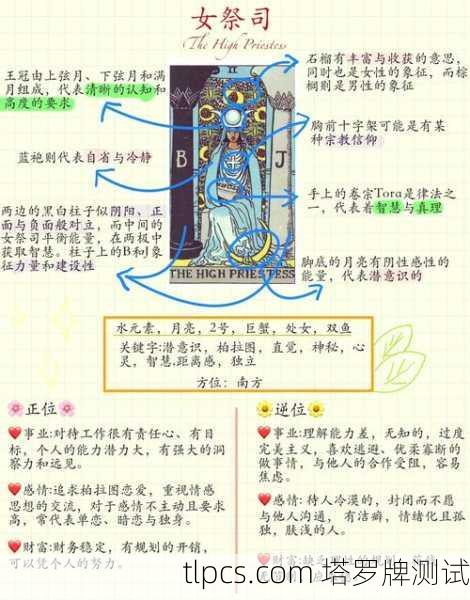 女祭司
The High Priestess
王冠由上弦月、下弦月和满
月组成，代表清晰的认知和
高度的要求
蓝袍则代表自省与冷静
两边的黑白柱子似阴阳、正
面与负面般对立，而中间的
女祭司平衡能量，在两极中
获取智慧。柱子上的B和J象
征力量和建设性
石榴有丰富与收获的意思，
同时也是女性的象征，而棕
榈则是男性的象征
胸前十字架可能是有某
种宗教信仰
手上的卷宗Tora是律法之
一，代表着智慧与真理
脚底的月亮有阴性感性的
能量，代表潜意识的
II
B
J
THE HIGH PRIESTESS
水元素，月亮，2号，巨蟹，处女，双鱼
关键字:潜意识，柏拉图，直觉，神秘，心
灵，智慧,距离感，独立
方位：南方
正位
事业:对待工作很有责任心、有目
标，个人的能力潜力大，有强大的洞
察力和远见。
感情:追求柏拉图恋爱，重视情感
思想的交流，对于感情不主动且要求
高，常代表单恋、暗恋与独身。
财富:财务稳定，有规划的开销，
可以凭个人的努力。
逆位
事业:理解能力差，无知的，过度
完美主义，喜欢逃避、优柔寡断的
做事情，与他人的合作受阻，容易
焦虑。
感情: 待人冷漠的，封闭而不愿
与他人沟通， 有洁癖，情绪化且孤
独，肤浅的人。
财富:缺乏理性的规划
tlpcs.com 塔罗牌测试